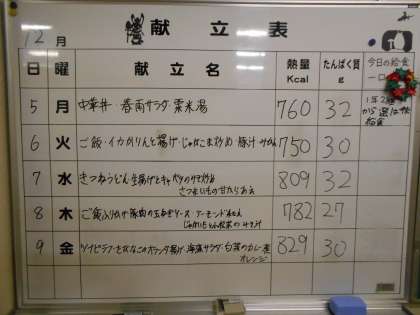 献立表
12 月
日 曜 献立名 熱量 Kcal たんぱく質 g 今日の給食
5 月 中華丼・春雨サラダ・粟米湯 760 32
6 火 ご飯・イカかりんと揚げ・じゃこ炒め・豚汁 みかん 750 30
7 水 きつねうどん 生揚げとキャベツのみそ炒め 809 32
さつまいもの甘から
8 木 ご飯 ふりかけ 豚肉の玉ねぎソース アーモンド和え 782 27
じゃがいも のみそ汁
9 金 ソイピラフ・ オランダ揚げ・海藻サラダ・白菜のカレー煮 829 30
オレンジ